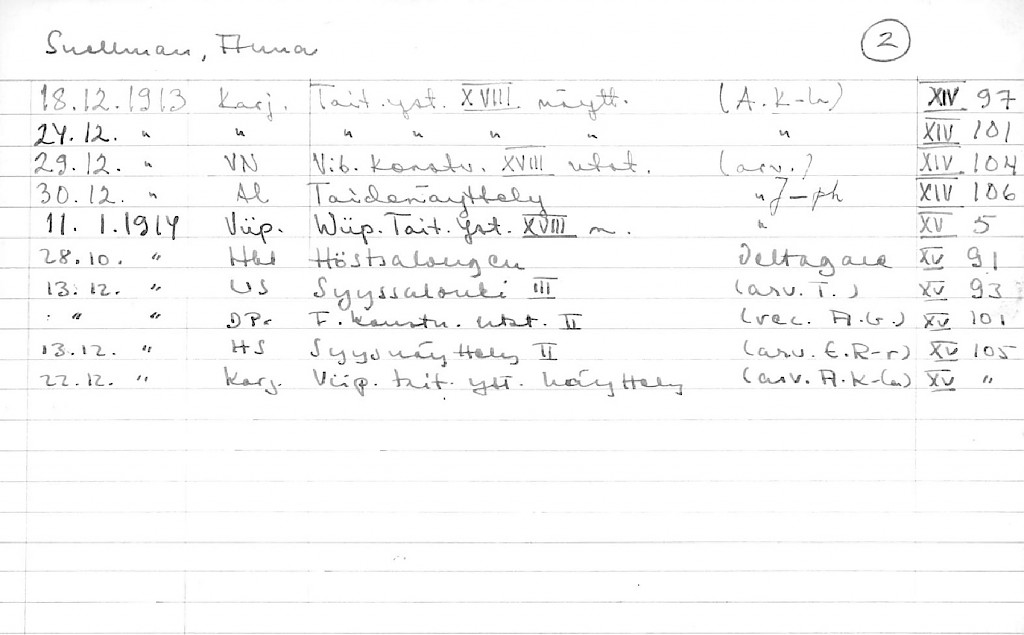 Snellman, Anna 2
18.12.1913 Karj. Tait. yst. XVIII näytt. (A. K-la) XIV 97
24.12. " " " " " " " XIV 101
29.12. " VN Vib. konstv. XVIII utst. (arv.) XIV 104
30.12. " AL Taidenäyttely " J-ph XIV 106
11. 1.1914 Viip. Wiip. Tait. Yst. XVIII n. " XV 5
28.10. " Hbl Höstsalongen Deltagare XV 91
13.12. " US Syyssalonki III (arv. T.) XV 93
" " DPr F. konstn. utst. II (rec. A.G.) XV 101
13.12. " HS Syysnäyttely II (arv. E.R-r) XV 105
22.12. " Karj. Viip. tait. yst. näyttely (arv. A.K-la) XV "